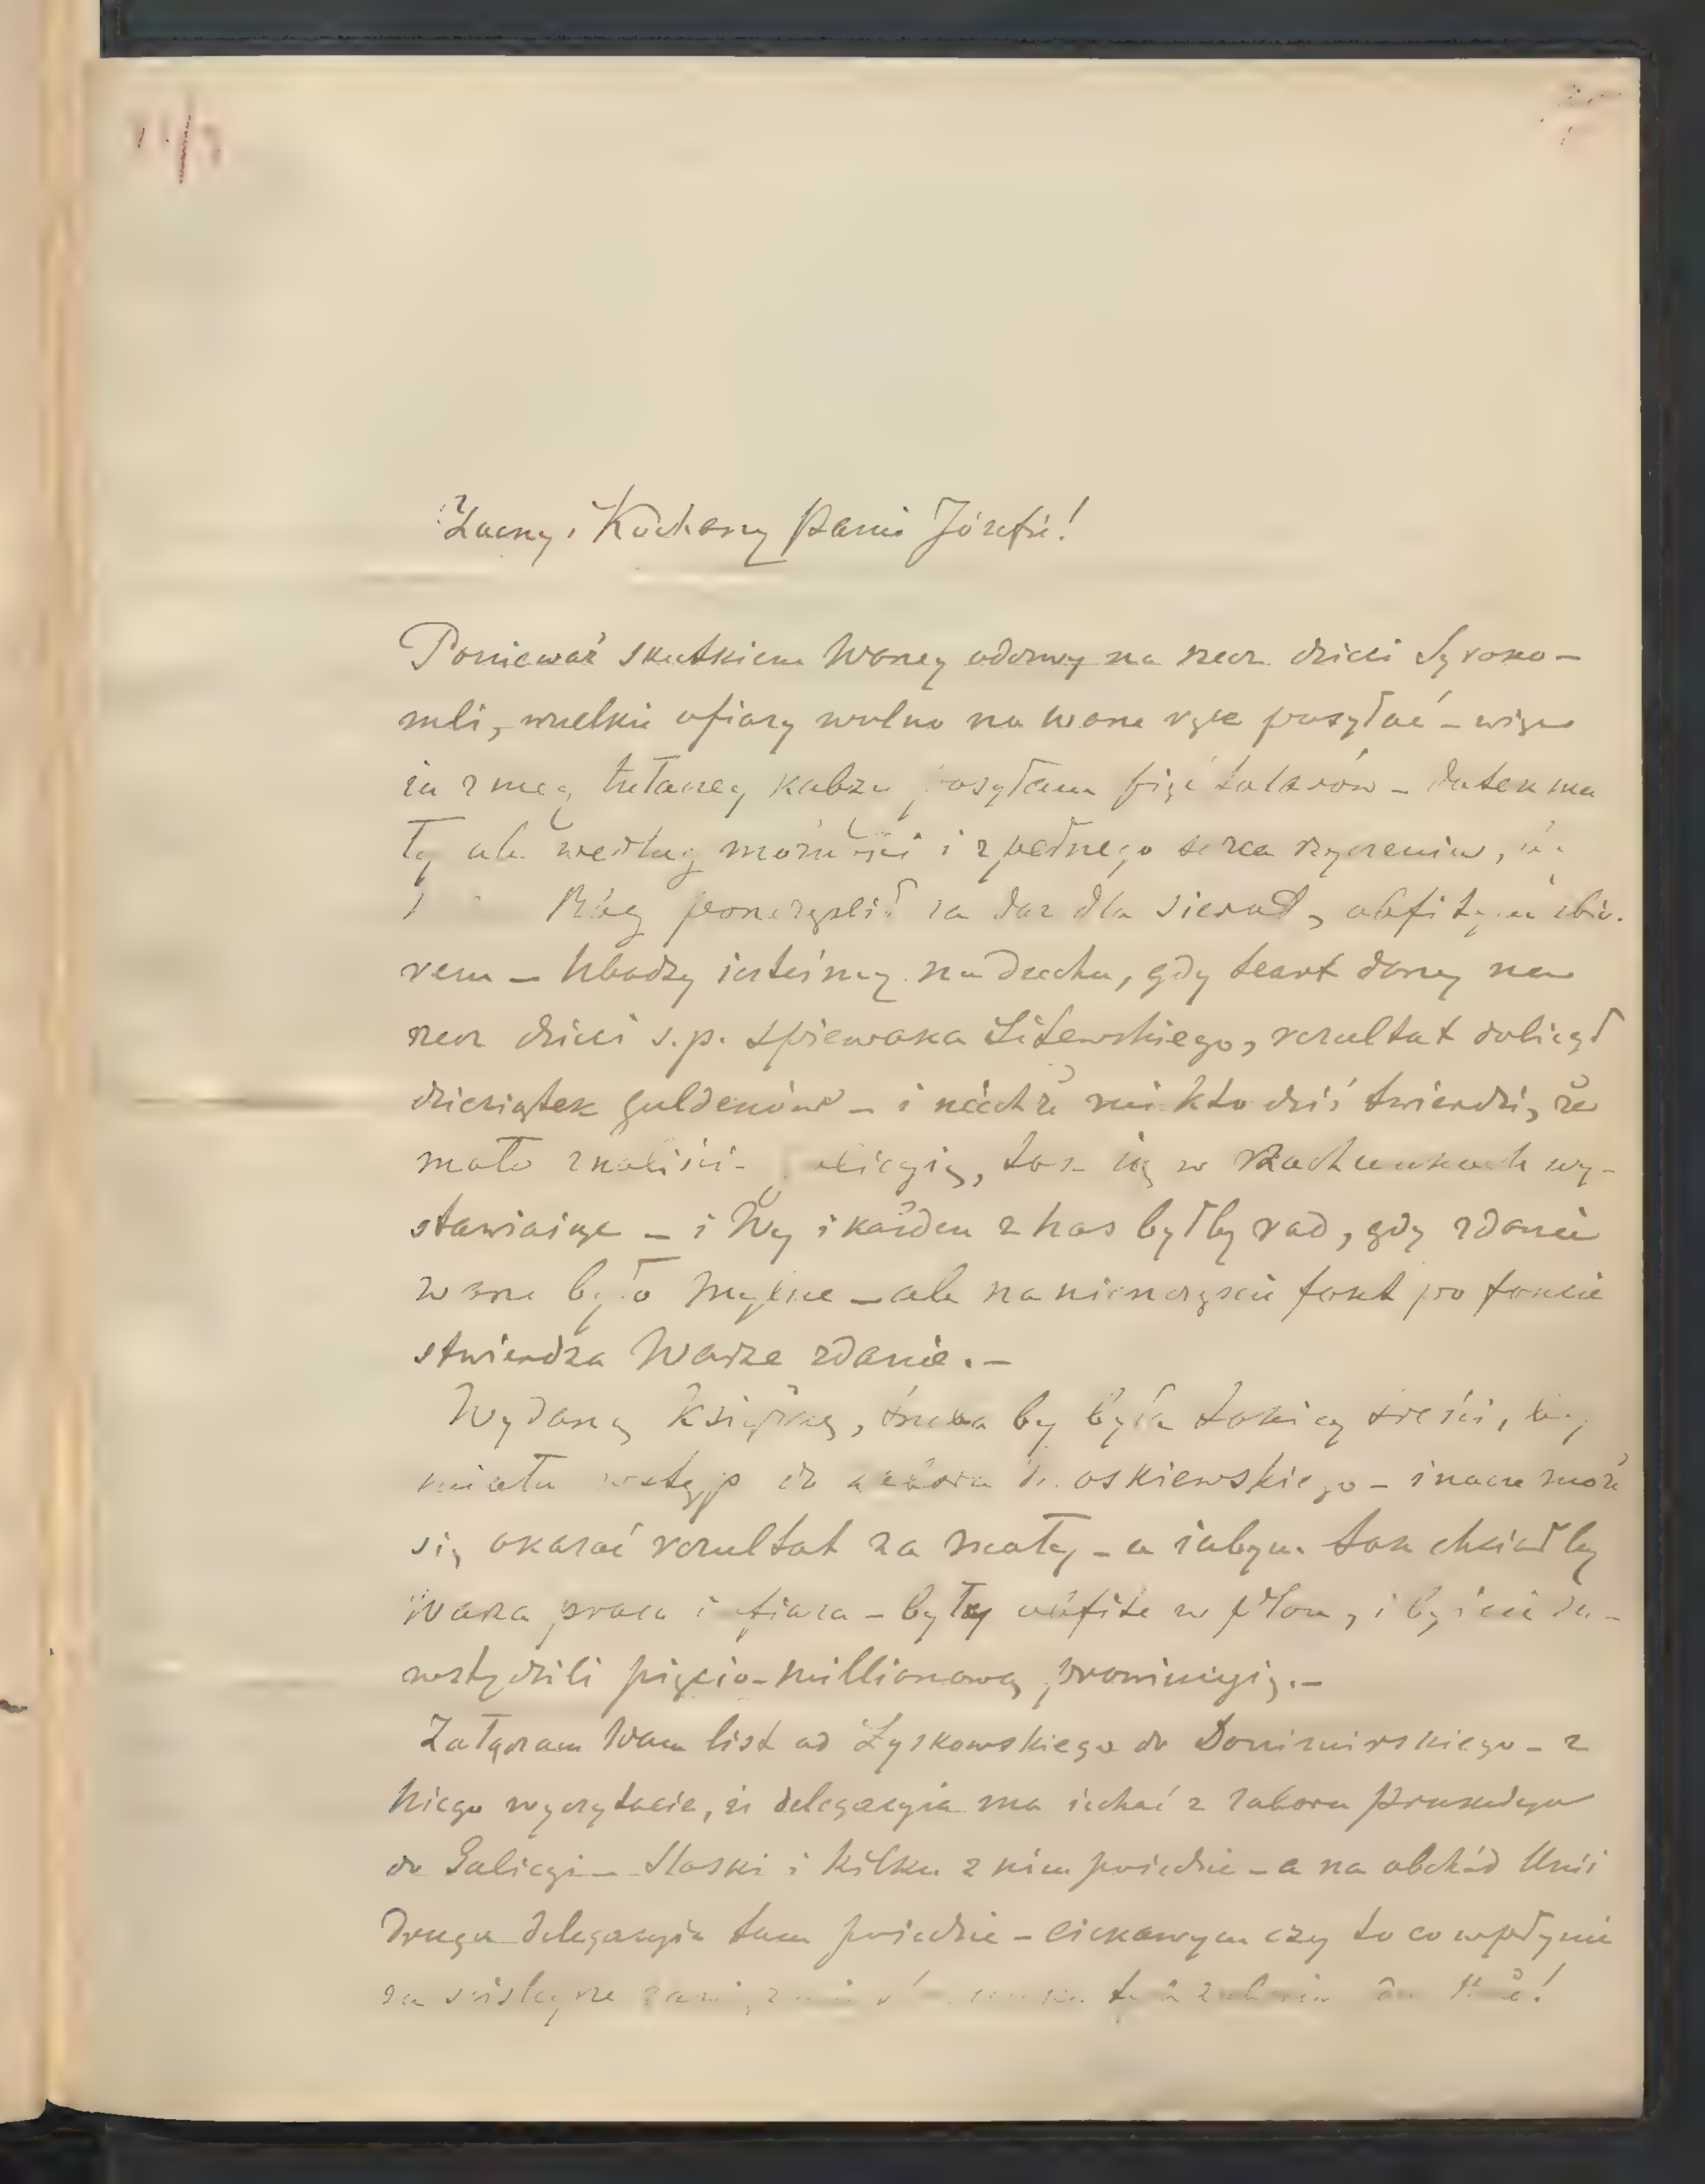 Zacny i Kochany Panie Józefie!
Ponieważ skutkiem Waszey odezwy na rzecz dzieci Syroko-
mli, wszelkie ofiary wolno na wasze ręce posyłać – więc
ia z mey tułaczey kabzy posyłam pięć talarów – datek ma
ły ale według możności i z pełnego serca życzeniem,
Bóg pomnożył za dar dla sierot, obfitym zbio-
rem – Ubodzy iesteśmy na duchu, gdy teatr dany na
rzecz dzieci s.p. śpiewaka Litewskiego, rezultat dosiągł
dziesiątek guldenów – i niechże mi kto dziś twierdzi, że
mało znaliści Galicyią, tak ią w rachunkach wy-
stawiaiąc – i Wy i każden z nas byłby rad, gdy zdanie
wasze było mylne – ale na nieszczęście fakt po fakcie
stwierdza Wasze zdanie. –
Wydaną Książkę, trzeba by była takiey treści, by
miała wstęp do zaboru Moskiewskiego – inacze może
się okazać rezultat za mały – a iabym tak chciał by
Wasza praca i ofiara – były obfite w plon, i byście za-
wstydzili pięcio-millionową prowincyią. –
Załączam Wam list od Łyskowskiego do Donimirskiego – z
niego wyczytacie, iż delegacyia ma iechać z zaboru Pruskiego
do Galicyi – Slaski i kilku z nim poiedzie – a na obchód Unii
druga delegacyia tam poiedzie – ciekawym czy to co wpłynie